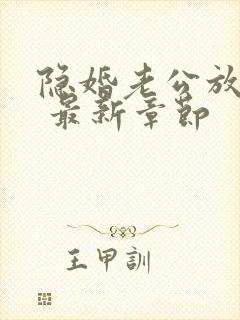 隐婚老公放
最新章节
王甲訓